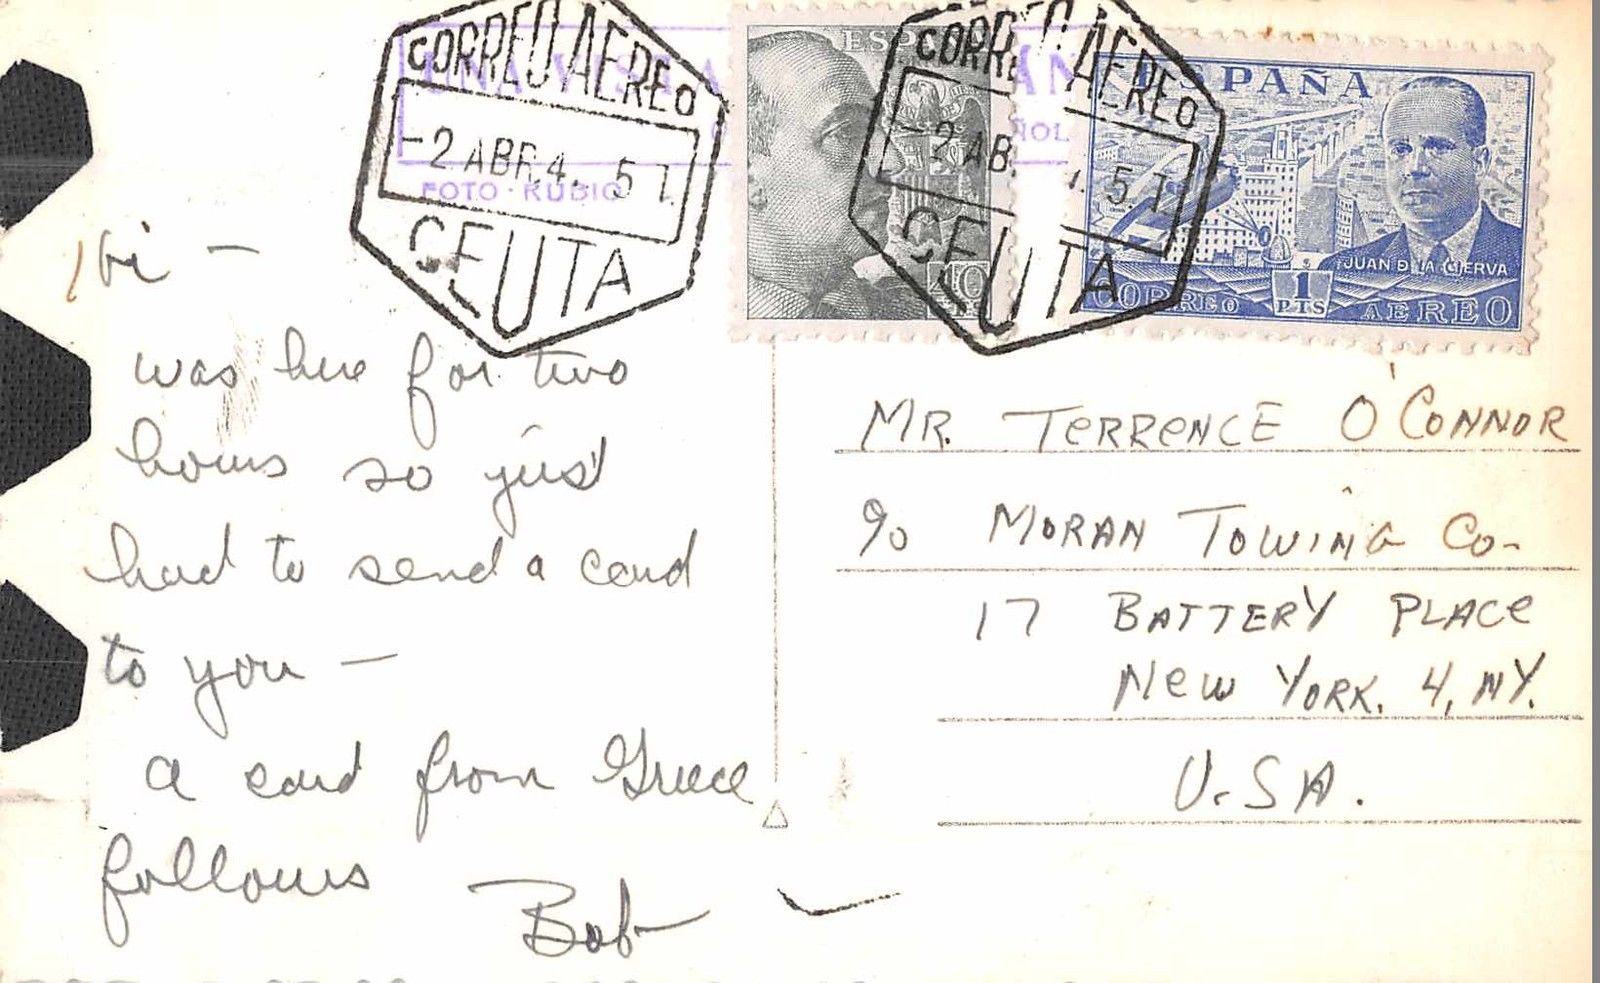 CORREO AEREO
-2 ABR.4. 5 T.
CEUTA
FOTO-RUBIO
CORREO AEREO
CEUTA
40
ESPAÑA
JUAN D LA CIERVA
1
PTS
CORREO AEREO
Hi —
was here for two
hours so just
had to send a card
to you —
a card from Greece
follows
Bob
MR. TERRENCE O'CONNOR
% MORAN TOWING CO-
17 BATTERY PLACE
NEW YORK. 4, NY.
U.SA.